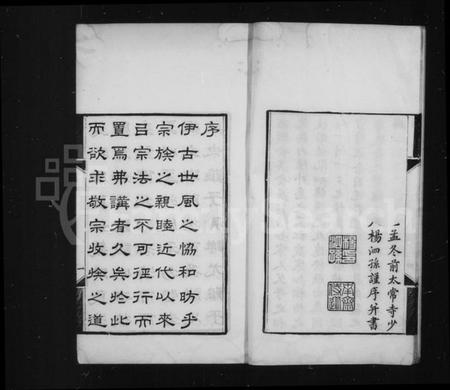 序
伊古世風之協和昉乎
宗族之親睦近代以來
吕宗法之不可徑行而
置焉弗講者久矣於此
而欲求敬宗收族之道
孟冬前太常寺少
楊泗孫謹序并書